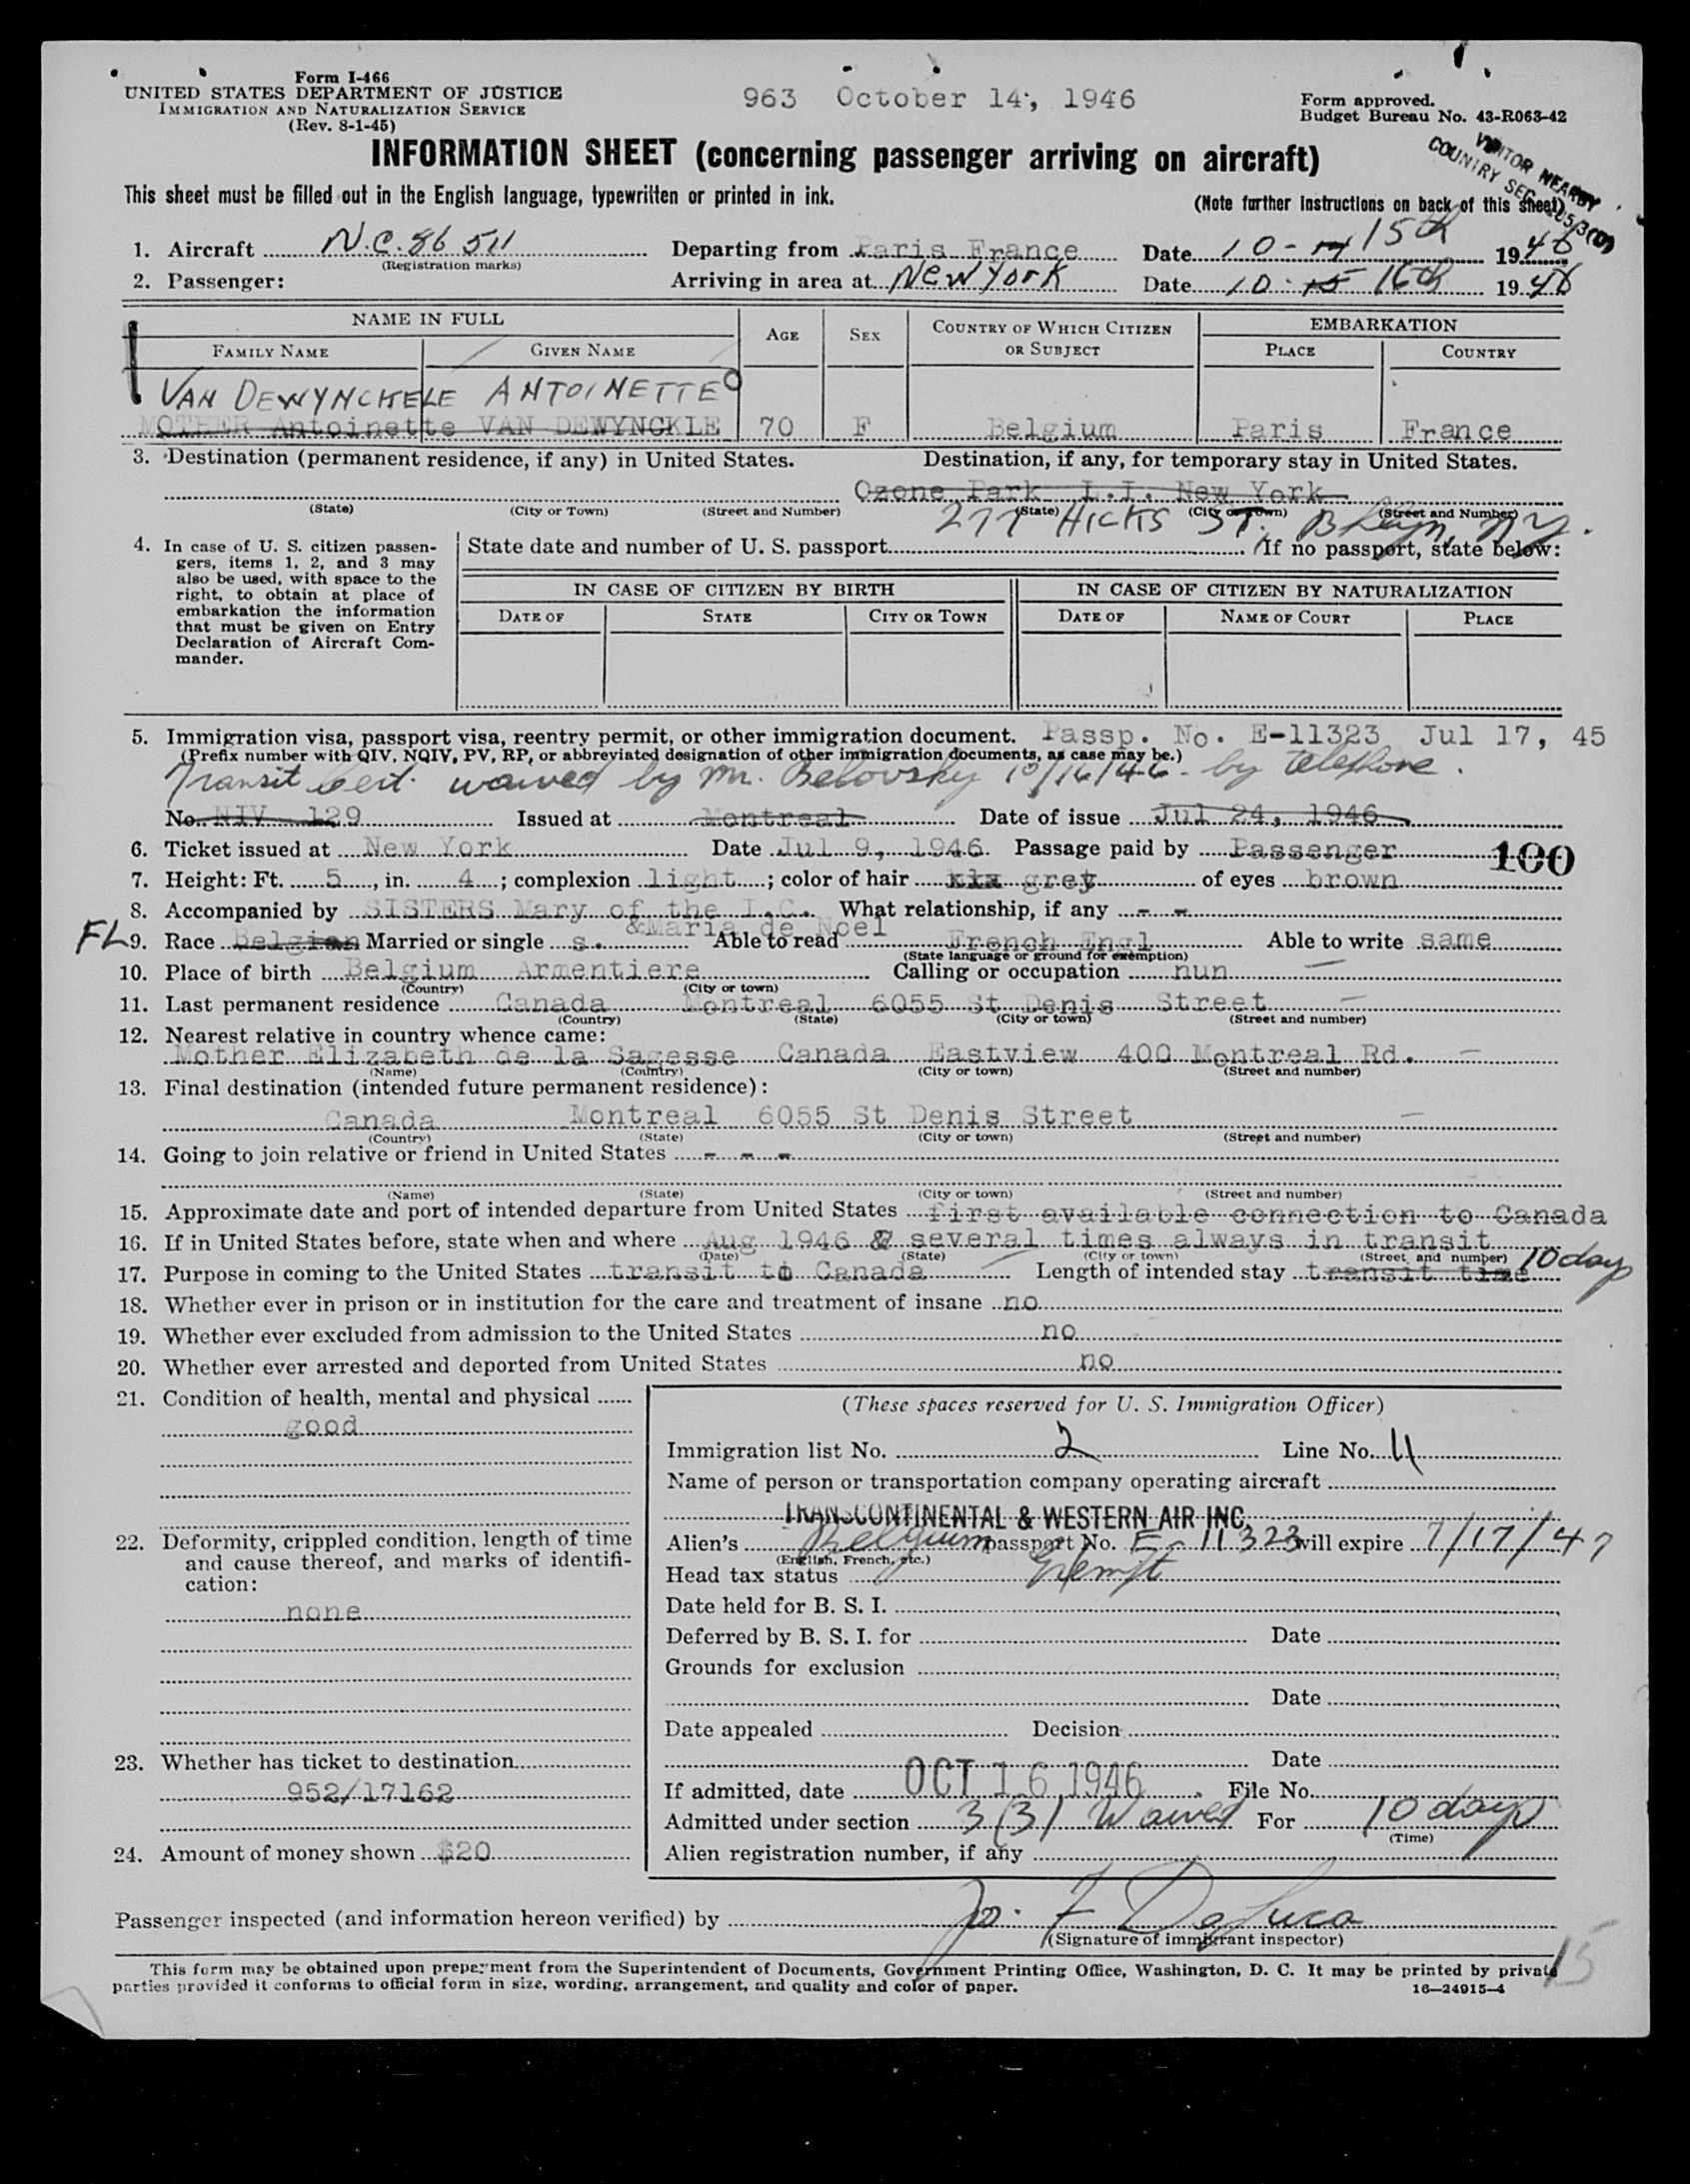 Form I-466
UNITED STATES DEPARTMENT OF JUSTICE
IMMIGRATION AND NATURALIZATION SERVICE
(Rev. 8-1-45)
963 October 14, 1946
Form approved.
Budget Bureau No. 43-R063-42
VISITOR NEARBY
COUNTRY SEC.
INFORMATION SHEET (concerning passenger arriving on aircraft)
This sheet must be filled out in the English language, typewritten or printed in ink.
(Note further instructions on back of this sheet)
1. Aircraft N.C. 86 511 Departing from Paris France Date 10-14 15th 1946
(Registration marks)
2. Passenger: Arriving in area at New York Date 10-15 16th 1946
NAME IN FULL AGE SEX COUNTRY OF WHICH CITIZEN OR SUBJECT EMBARKATION
FAMILY NAME GIVEN NAME PLACE COUNTRY
VAN DEWYNCKELE ANTOINETTE
MOTHER Antoinette VAN DEWYNCKLE 70 F Belgium Paris France
3. Destination (permanent residence, if any) in United States. Destination, if any, for temporary stay in United States.
Ozone Park L.I. New York
(State) (City or Town) (Street and Number) (State) (City or Town) (Street and Number)
277 HICKS ST. Bklyn, NY.
4. In case of U. S. citizen passengers, items 1, 2, and 3 may also be used, with space to the right, to obtain at place of embarkation the information that must be given on Entry Declaration of Aircraft Commander.
State date and number of U. S. passport If no passport, state below:
IN CASE OF CITIZEN BY BIRTH IN CASE OF CITIZEN BY NATURALIZATION
DATE OF STATE CITY OR TOWN DATE OF NAME OF COURT PLACE
5. Immigration visa, passport visa, reentry permit, or other immigration document. Passp. No. E-11323 Jul 17, 45
(Prefix number with QIV, NQIV, PV, RP, or abbreviated designation of other immigration documents, as case may be.)
Transit cert. waived by Mr. Belovsky 10/16/46 - by telephone.
No. NIV 129 Issued at Montreal Date of issue Jul 24, 1946
6. Ticket issued at New York Date Jul 9, 1946 Passage paid by Passenger
100
7. Height: Ft. 5, in. 4; complexion light; color of hair xix grey of eyes brown
8. Accompanied by SISTERS Mary of the I.C. What relationship, if any - -
&Maria de Noel
FL 9. Race Belgian Married or single s. Able to read French Engl Able to write same
(State language or ground for exemption)
10. Place of birth Belgium Armentiere Calling or occupation nun
(Country) (City or town)
11. Last permanent residence Canada Montreal 6055 St Denis Street
(Country) (State) (City or town) (Street and number)
12. Nearest relative in country whence came:
Mother Elizabeth de la Sagesse Canada Eastview 400 Montreal Rd.
(Name) (Country) (City or town) (Street and number)
13. Final destination (intended future permanent residence):
Canada Montreal 6055 St Denis Street
(Country) (State) (City or town) (Street and number)
14. Going to join relative or friend in United States - - -
(Name) (State) (City or town) (Street and number)
15. Approximate date and port of intended departure from United States first available connection to Canada
16. If in United States before, state when and where Aug 1946 & several times always in transit
(Date) (State) (City or town) (Street and number)
17. Purpose in coming to the United States transit to Canada Length of intended stay transit time 10 days
18. Whether ever in prison or in institution for the care and treatment of insane no
19. Whether ever excluded from admission to the United States no
20. Whether ever arrested and deported from United States no
21. Condition of health, mental and physical
good
22. Deformity, crippled condition, length of time and cause thereof, and marks of identification:
none
23. Whether has ticket to destination
952/17162
24. Amount of money shown $20
(These spaces reserved for U. S. Immigration Officer)
Immigration list No. 2 Line No. 4
Name of person or transportation company operating aircraft
TRANSCONTINENTAL & WESTERN AIR INC.
Alien's Belgium passport No. E-11323 will expire 7/17/47
(English, French, etc.)
Head tax status Exempt
Date held for B. S. I.
Deferred by B. S. I. for Date
Grounds for exclusion
Date
Date appealed Decision
Date
If admitted, date OCT 16 1946 File No.
Admitted under section 3(3) Waived For 10 days
(Time)
Alien registration number, if any
Passenger inspected (and information hereon verified) by Jo. F DeLuca
(Signature of immigrant inspector)
15
This form may be obtained upon prepayment from the Superintendent of Documents, Government Printing Office, Washington, D. C. It may be printed by private
parties provided it conforms to official form in size, wording, arrangement, and quality and color of paper.
16—24915-4